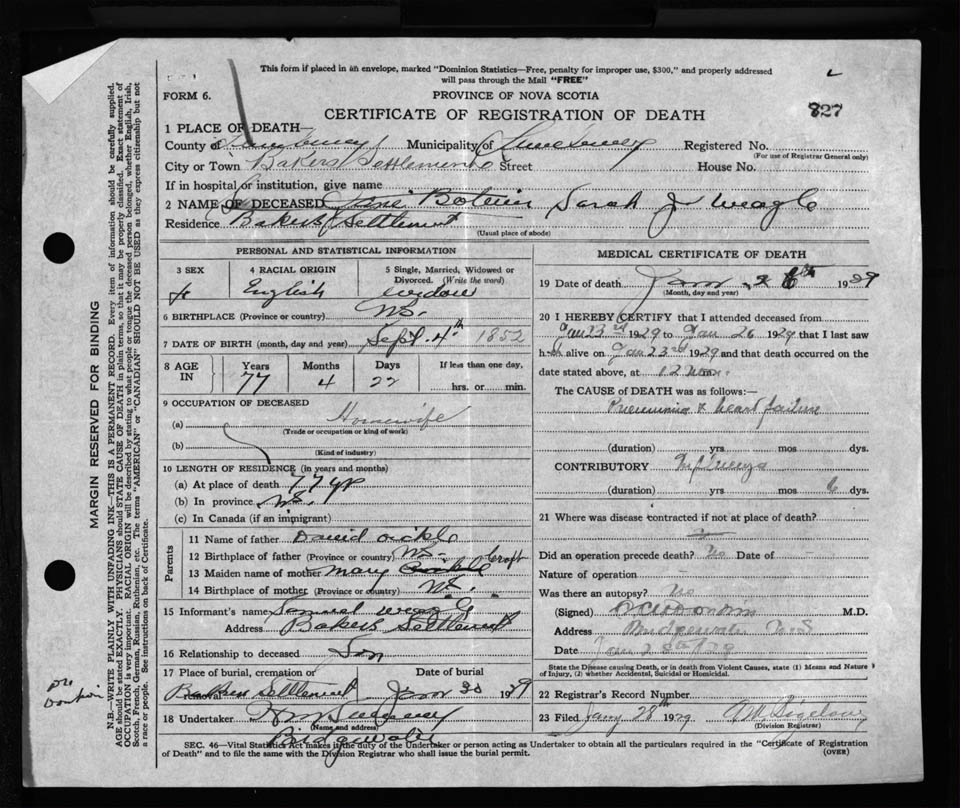 This form if placed in an envelope, marked "Dominion Statistics—Free, penalty for improper use, $300," and properly addressed
will pass through the Mail "FREE"
FORM 6.
PROVINCE OF NOVA SCOTIA
827
CERTIFICATE OF REGISTRATION OF DEATH
1 PLACE OF DEATH—
County of Lunenburg Municipality of Lunenburg Registered No.
(For use of Registrar General only)
City or Town Bakers Settlement Street House No.
If in hospital or institution, give name
2 NAME OF DECEASED Jane Sarah J Weagle
Residence Bakers Settlement
(Usual place of abode)
PERSONAL AND STATISTICAL INFORMATION
3 SEX
4 RACIAL ORIGIN
5 Single, Married, Widowed or Divorced. (Write the word)
f English widow
6 BIRTHPLACE (Province or country) N.S.
7 DATE OF BIRTH (month, day and year) Sept. 4th 1852
8 AGE IN
Years Months Days If less than one day,
77 4 22 hrs. or min.
9 OCCUPATION OF DECEASED
(a) Housewife
(Trade or occupation or kind of work)
(b)
(Kind of industry)
10 LENGTH OF RESIDENCE (in years and months)
(a) At place of death 77 yr
(b) In province N.S.
(c) In Canada (if an immigrant)
Parents
11 Name of father David Oickle
12 Birthplace of father (Province or country) N.S.
13 Maiden name of mother Mary Croft
14 Birthplace of mother (Province or country) N.S.
15 Informant's name Samuel
Address Bakers Settlement
16 Relationship to deceased Son
17 Place of burial, cremation or Date of burial
Bakers Settlement Jan 1929
18 Undertaker
(Name and address)
Bridgewater
MEDICAL CERTIFICATE OF DEATH
19 Date of death Jan 26th 1929
(Month, day and year)
20 I HEREBY CERTIFY that I attended deceased from
Jan 23rd 1929 to Jan 26 1929 that I last saw
h alive on Jan 23rd 1929 and that death occurred on the
date stated above, at 12
The CAUSE OF DEATH was as follows:—
Pneumonia & heart failure
(duration) yrs mos dys.
CONTRIBUTORY Influenza
(duration) yrs mos 6 dys.
21 Where was disease contracted if not at place of death?
Did an operation precede death? No Date of
Nature of operation
Was there an autopsy? No
(Signed) M.D.
Address Bridgewater N.S.
Date Jan
State the Disease causing Death, or in death from Violent Causes, state (1) Means and Nature of Injury, (2) whether Accidental, Suicidal or Homicidal.
22 Registrar's Record Number
23 Filed Jany 28th 1929
(Division Registrar)
SEC. 46—Vital Statistics Act makes it the duty of the Undertaker or person acting as Undertaker to obtain all the particulars required in the "Certificate of Registration
of Death" and to file the same with the Division Registrar who shall issue the burial permit.
(OVER)
MARGIN RESERVED FOR BINDING
N.B.—WRITE PLAINLY WITH UNFADING INK—THIS IS A PERMANENT RECORD. Every item of information should be carefully supplied.
AGE should be stated EXACTLY. PHYSICIANS should STATE CAUSE OF DEATH in plain terms, so that it may be properly classified. Exact statement of
OCCUPATION is very important. RACIAL ORIGIN will be described by stating to what people or tongue the deceased person belonged, whether English, Irish,
Scotch, French, German, Russian, Ruthenian, etc. The terms "AMERICAN" or "CANADIAN" SHOULD NOT BE USED as they express citizenship but not
a race or people. See instructions on back of Certificate.